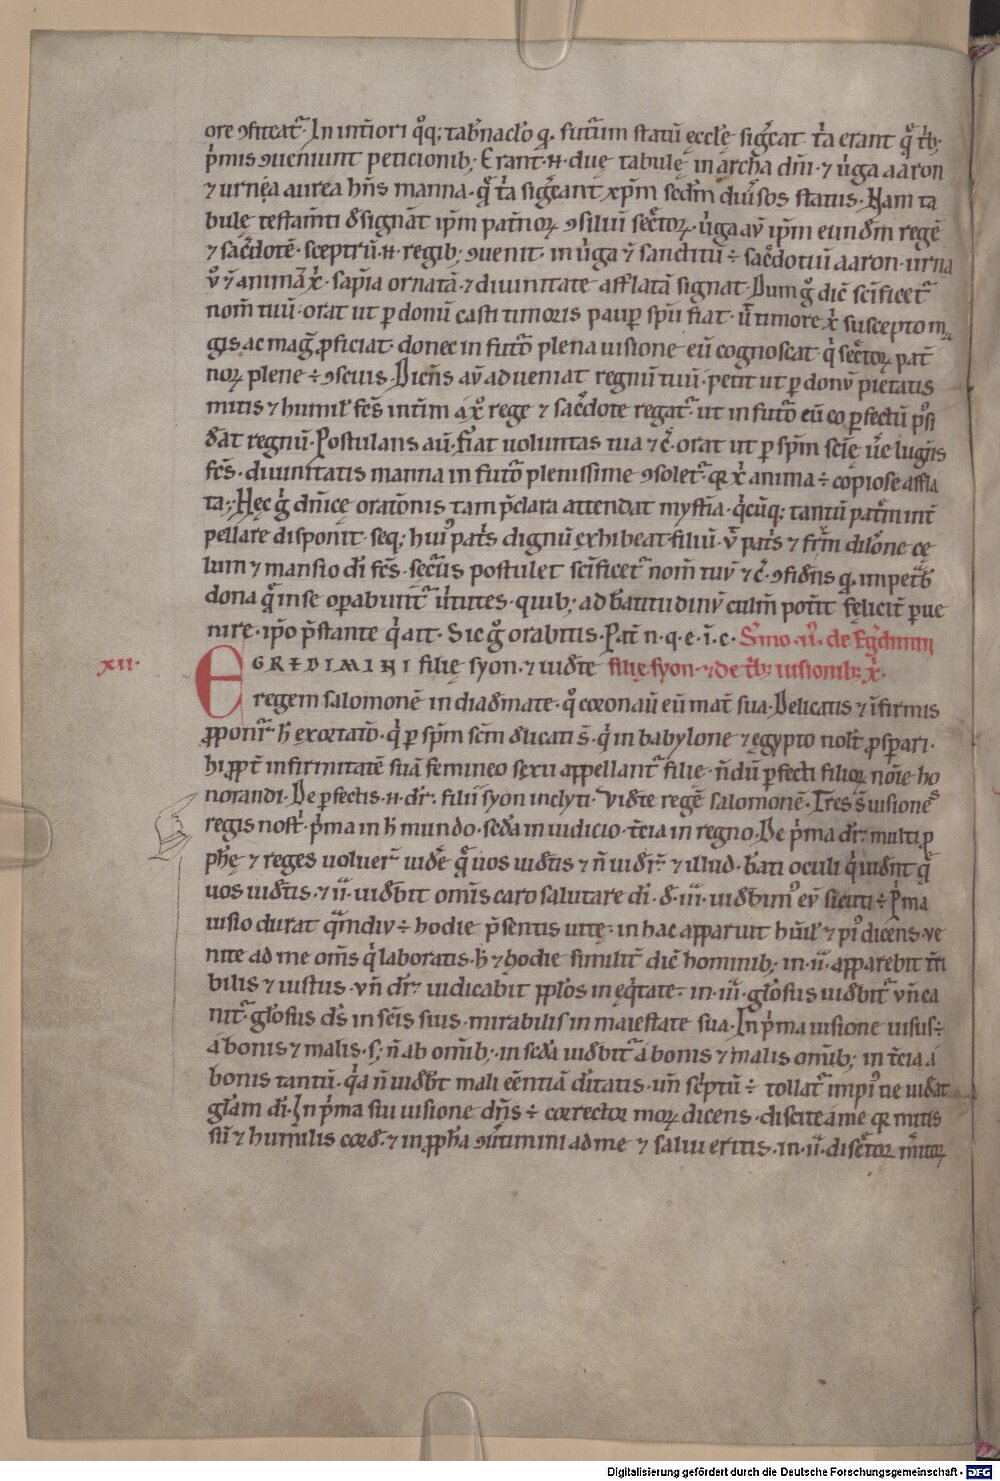 ore ꝯfiteat᷑. In int̄iori qͦq; tab̄nac̄lo qꝛ futurum statū ęccl̄ę sig̅cat. t̄a erant q̄ t̄b;
p̄mis ꝯueniunt peticionib; Erant .n. duę tabulę in archa dn̄i. ⁊ ūga aaron
⁊ urnęa aurea hn̄s manna. q̄ t̄a sig̅cant xp̄m sed̄m diūsos status. Nam ta
bulę testam̄ti d̄signāt ip̄m patn̄oꝝ ꝯsiliū sec̄toꝝ. ūga aū ip̄m eund̄m regē
⁊ sac̄dotē. sceptrū .n. regib; ꝯuenit. in ūga ⁊ sanctitū ÷ sac̄dotiū aaron. urna
animā x̄. sap̄ia ornatā. ⁊ diuinitate afflatā signat. Dum gͦ dic̄ sc̄ificet᷑
nom̄ tuū. orat ut ꝑ donū casti timoris paup̄ sp̄u fiat. ū timore x̄ suscepto m
gis ac mag̅ ꝓficiat. donec in futͦo plena uisione eū cognoscat qͥ sec̄toꝝ pat̄
noꝝ plene ÷ ꝯscius. Dicn̄s aū adueniat regnū tuū. petit ut ꝑ donū pietatis
mitis ⁊ humil̄ fc̄s int̄im a xͦ rege ⁊ sac̄dote regat᷑. ut in futͦo eū eo ꝑfectū pͦsi
d̄at regnū. Postulans aū. fiat uoluntas tua ⁊ c̄. orat ut ꝑ sp̄m scīę ūe lugn̄s
fc̄s. diuinitatis manna in futͦo plenissime ꝯsolet᷑. qꝛ x̄ anima ÷ copiose affla
ta;. Hęc gͥ dn̄icę orat̄onis tam p̄clara attendat myst̄ia. qͥcūq; tantū patr̄m int̄
pellare disponit. seq; huiꝰ pat̄s dignū exhibeat filiū. ū pat̄s ⁊ fr̄m dil̄one cę
lum ⁊ mansio di̅ fc̄s. sec̄us postulet sc̄ificet᷑ nom̄ tuū ⁊ c̄. ꝯfidn̄s qꝛ impet̄b
dona q̄ in se oꝑabunt᷑ ūtutes. quib; ad b̄atitudinū culm̄ pot̄it fęlicit̄ ꝑue
nire. ip̄o p̄stante qͥ ait. Sic gͦ orabitis. Pat̄ n. q. e. i. c. S̄mo .ū. de Eg̅dimin
xii.
EGREDIMINI filię syon. ⁊ uid̄te filię syon. ⁊ de t̄b; uisionib; x̄.
regem salomonē in diad̄mate. qͦ coronaū eū mat̄ sua. Delicatis ⁊ īfirmis
ꝓponit᷑ h̄ exortat̄o. qͥ ꝑ sp̄m sc̄m d̄licati s̄. qͥ in babylone ⁊ ęgypto nol̄t ꝓsꝑari.
hi ꝓpt̄ infirmitatē suā femineo sexu appellant᷑ filie. n̄dū ꝑfecti filioꝝ noīe ho
norandi. De ꝑfectis .n. dr̄. filii syon inclyti. Vid̄te regē salomonē. Tres s̄ uisiones
regis nost̄. p̄ma in h̄ mundo. sed̄a in iudicio. t̄cia in regno. De p̄ma dr̄. multi ꝓ
phę ⁊ reges uoluer̄ uid̄e q̄ uos uid̄tis ⁊ n̄ uid̄r̄. ⁊ illud. b̄ati oculi qͥ uid̄nt q̄
uos uid̄tis. ⁊ .ii. uid̄bit omīs caro salutare di̅. d̄ .iii. uid̄bim̄ꝰ eū sicuti ÷ P̄ma
uisio durat qm̄diu ÷ hodie p̄sentis uitę. in hac apparuit hūil̄ ⁊ piꝰ dicens. ve
nite ad me om̄s qͥ laboratis. h̄ ⁊ hodie similit̄ dic̄ hominib; in .ii. apparebit t̄ri
bilis ⁊ iustus. vn̄ dr̄. iudicabit ppl̄os in eq̄tate. in .iii. gl̄osus uid̄bit᷑ vn̄ ca
nit᷑. gl̄osus ds̄ in sc̄is suis. mirabilis in maiestate sua. In p̄ma uisione uisus ÷
a bonis ⁊ malis. s; n̄ ab om̄ib; in sed̄a uid̄bit᷑ a bonis ⁊ malis om̄ib; in t̄cia a
bonis tantū. qͥa n̄ uid̄bt̄ mali eēntiā d̄itatis. un̄ sc̄ptū ÷ tollat᷑ impiꝰ ne uid̄at
gl̄am di̅. In p̄ma siū uisione dn̄s ÷ corrector moꝝ dicens. discite a me qꝛ mitis
sū ⁊ humilis cord̄. ⁊ in ꝓpha ꝯūtimini ad me ⁊ salui eritis. in .ii. disc̄tor m̄itoꝝ
Digitalisierung gefördert durch die Deutsche Forschungsgemeinschaft - DFG